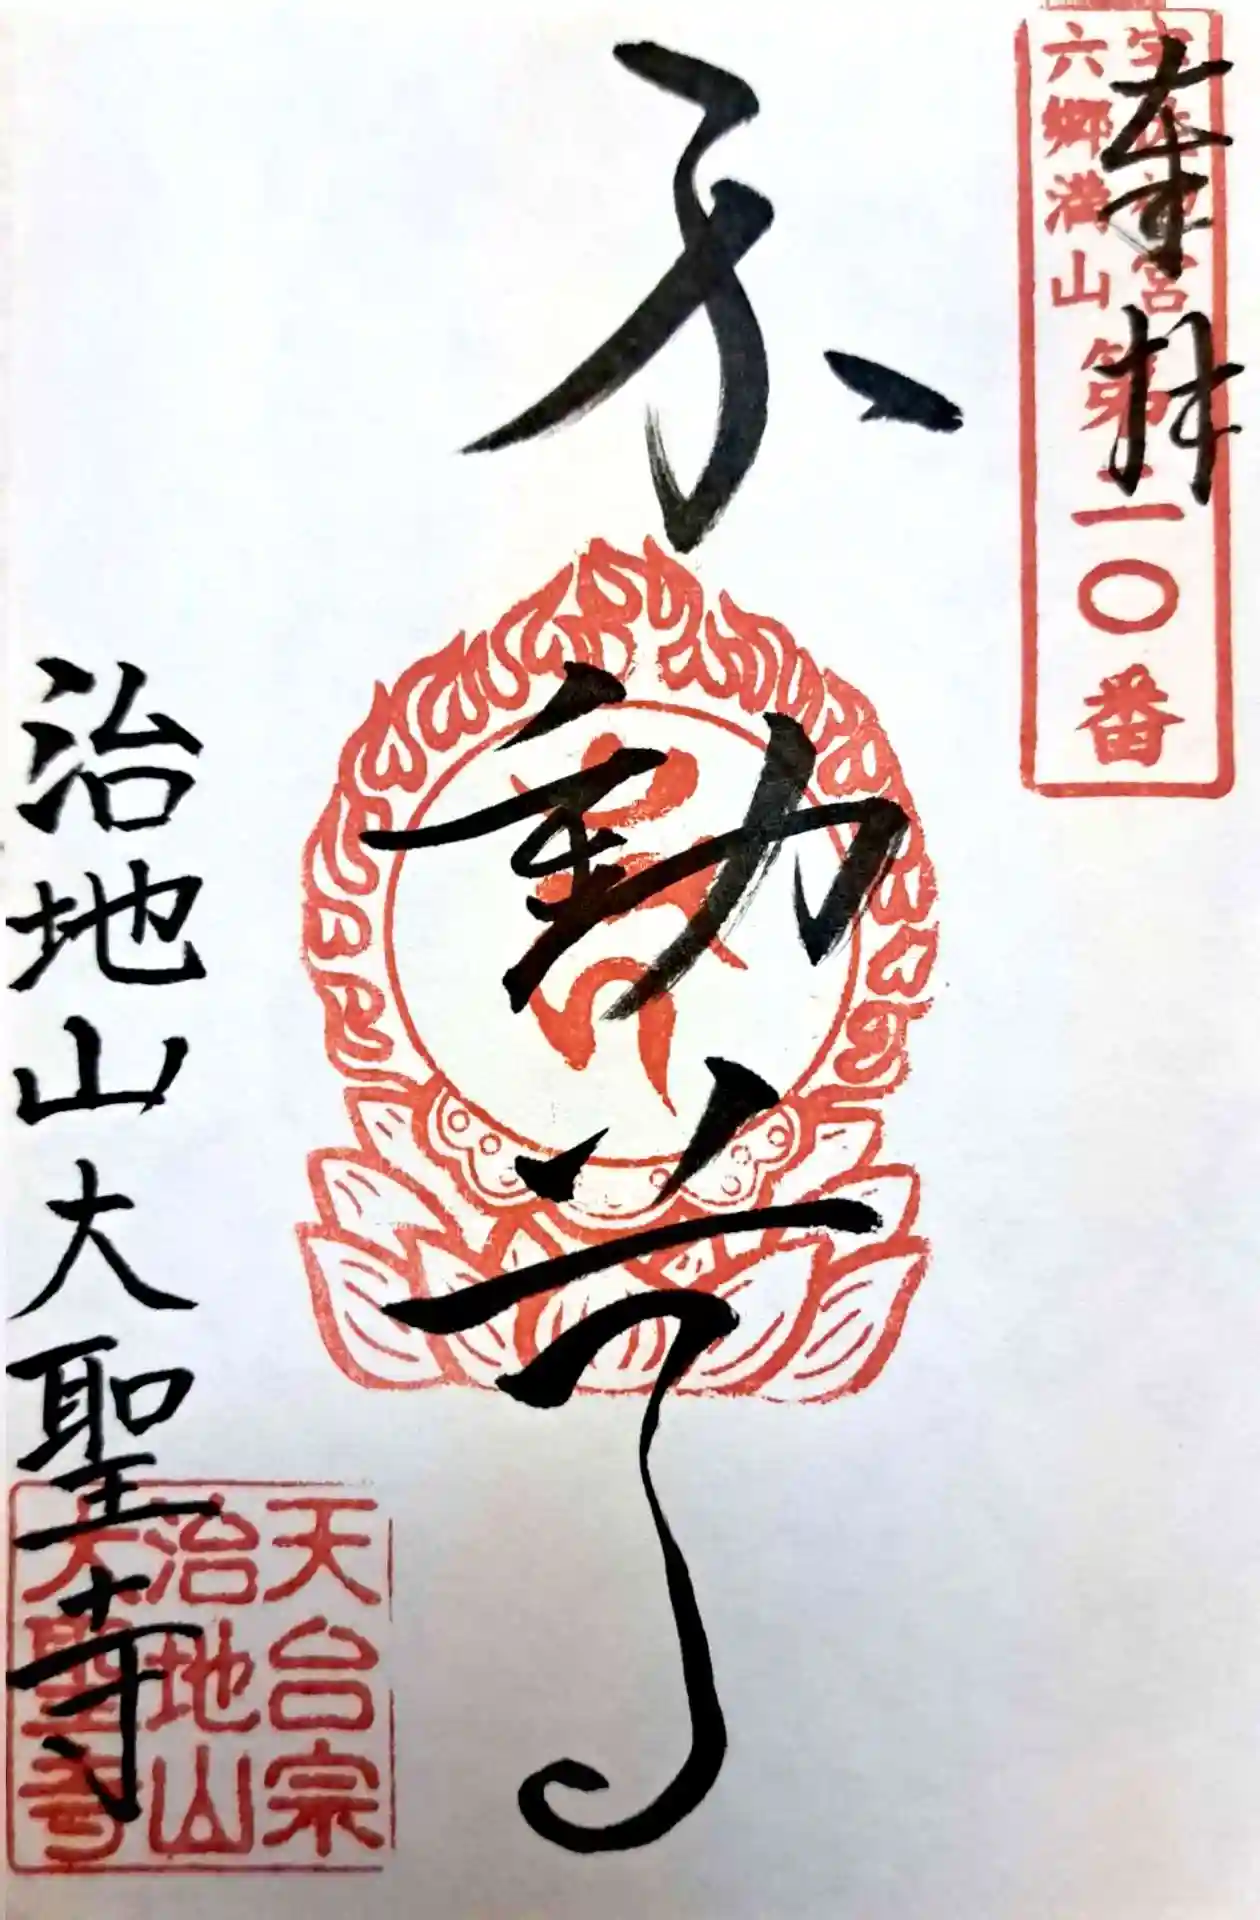 奉拝
宇佐神宮
六郷満山
第二〇番
不動尊
治地山大聖寺
天台宗
治地山
大聖寺